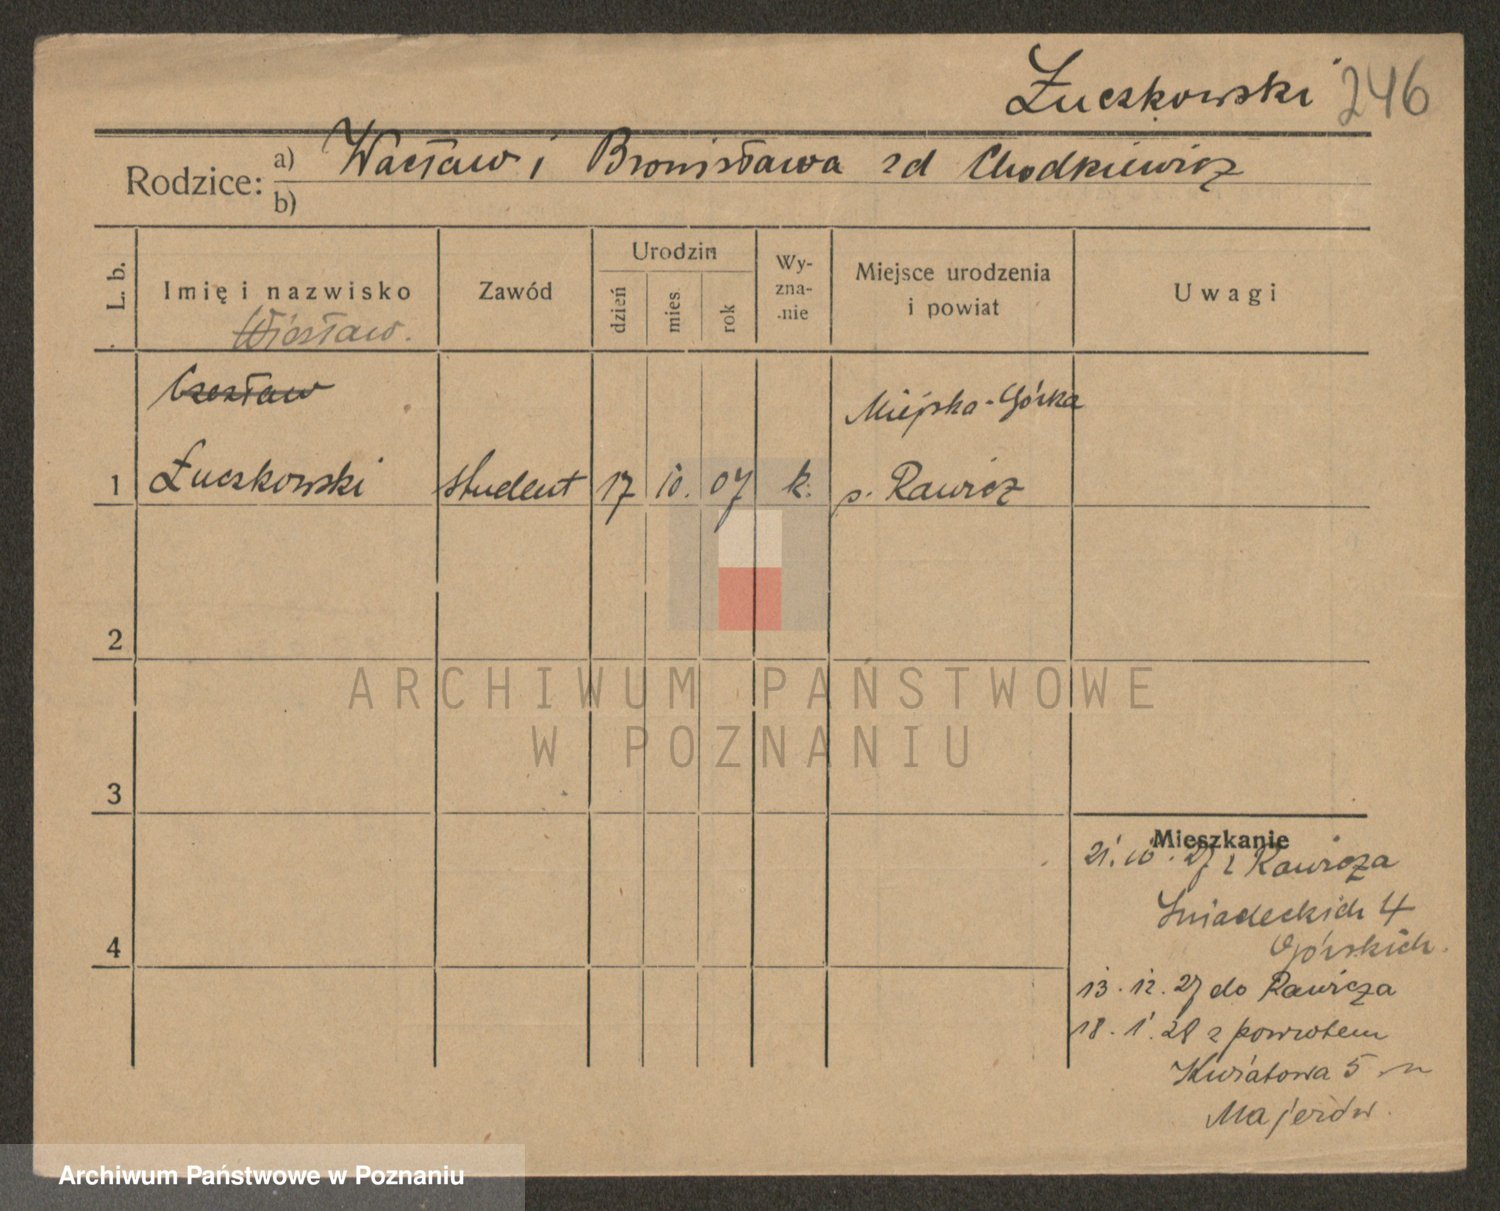 Żuczkowski 246
Rodzice: a) Wacław i Bronisława zd Chodkiewicz
b)
L. b. Imię i nazwisko Zawód Urodzin dzień mies. rok Wy-zna-nie Miejsce urodzenia i powiat Uwagi
Wiesław.
Czesław
Miejska-Górka
1 Żuczkowski student 17 10. 07 k. p. Rawicz
2
ARCHIWUM PAŃSTWOWE
W POZNANIU
3
Mieszkanie
21. 10. 27 z Rawicza
Śniadeckich 4
4
Górskich.
13. 12. 27 do Rawicza
18. 1. 28 z powrotem
Kwiatowa 5 u
Majerów.
Archiwum Państwowe w Poznaniu